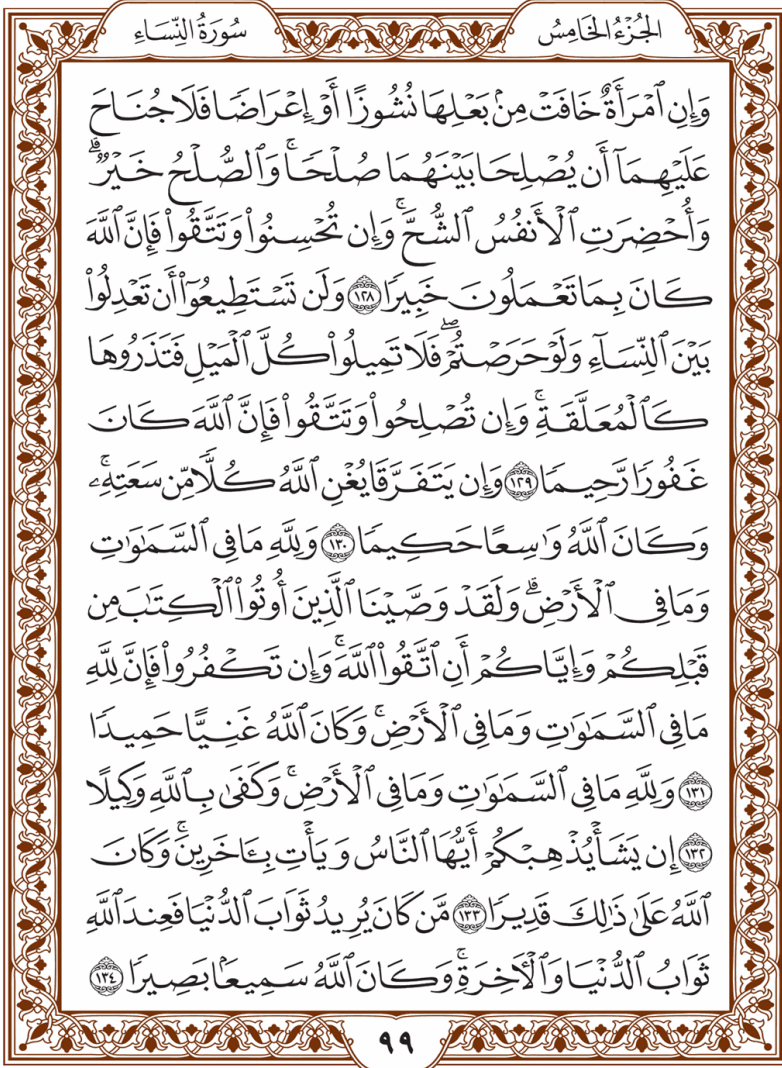 الجُزْءُ الخَامِسُ
سُورَةُ النِّسَاءِ
وَإِنِ ٱمۡرَأَةٌ خَافَتۡ مِنۢ بَعۡلِهَا نُشُوزًا أَوۡ إِعۡرَاضٗا فَلَا جُنَاحَ
عَلَيۡهِمَآ أَن يُصۡلِحَا بَيۡنَهُمَا صُلۡحٗاۚ وَٱلصُّلۡحُ خَيۡرٞۗ
وَأُحۡضِرَتِ ٱلۡأَنفُسُ ٱلشُّحَّۚ وَإِن تُحۡسِنُواْ وَتَتَّقُواْ فَإِنَّ ٱللَّهَ
كَانَ بِمَا تَعۡمَلُونَ خَبِيرٗا ١٢٨ وَلَن تَسۡتَطِيعُوٓاْ أَن تَعۡدِلُواْ
بَيۡنَ ٱلنِّسَآءِ وَلَوۡ حَرَصۡتُمۡۖ فَلَا تَمِيلُواْ كُلَّ ٱلۡمَيۡلِ فَتَذَرُوهَا
كَٱلۡمُعَلَّقَةِۚ وَإِن تُصۡلِحُواْ وَتَتَّقُواْ فَإِنَّ ٱللَّهَ كَانَ
غَفُورٗا رَّحِيمٗا ١٢٩ وَإِن يَتَفَرَّقَا يُغۡنِ ٱللَّهُ كُلّٗا مِّن سَعَتِهِۦۚ
وَكَانَ ٱللَّهُ وَٰسِعًا حَكِيمٗا ١٣٠ وَلِلَّهِ مَا فِي ٱلسَّمَٰوَٰتِ
وَمَا فِي ٱلۡأَرۡضِۗ وَلَقَدۡ وَصَّيۡنَا ٱلَّذِينَ أُوتُواْ ٱلۡكِتَٰبَ مِن
قَبۡلِكُمۡ وَإِيَّاكُمۡ أَنِ ٱتَّقُواْ ٱللَّهَۚ وَإِن تَكۡفُرُواْ فَإِنَّ لِلَّهِ
مَا فِي ٱلسَّمَٰوَٰتِ وَمَا فِي ٱلۡأَرۡضِۚ وَكَانَ ٱللَّهُ غَنِيًّا حَمِيدٗا
١٣١ وَلِلَّهِ مَا فِي ٱلسَّمَٰوَٰتِ وَمَا فِي ٱلۡأَرۡضِۚ وَكَفَىٰ بِٱللَّهِ وَكِيلًا
١٣٢ إِن يَشَأۡ يُذۡهِبۡكُمۡ أَيُّهَا ٱلنَّاسُ وَيَأۡتِ بِـَٔاخَرِينَۚ وَكَانَ
ٱللَّهُ عَلَىٰ ذَٰلِكَ قَدِيرٗا ١٣٣ مَّن كَانَ يُرِيدُ ثَوَابَ ٱلدُّنۡيَا فَعِندَ ٱللَّهِ
ثَوَابُ ٱلدُّنۡيَا وَٱلۡأٓخِرَةِۚ وَكَانَ ٱللَّهُ سَمِيعَۢا بَصِيرٗا ١٣٤
٩٩